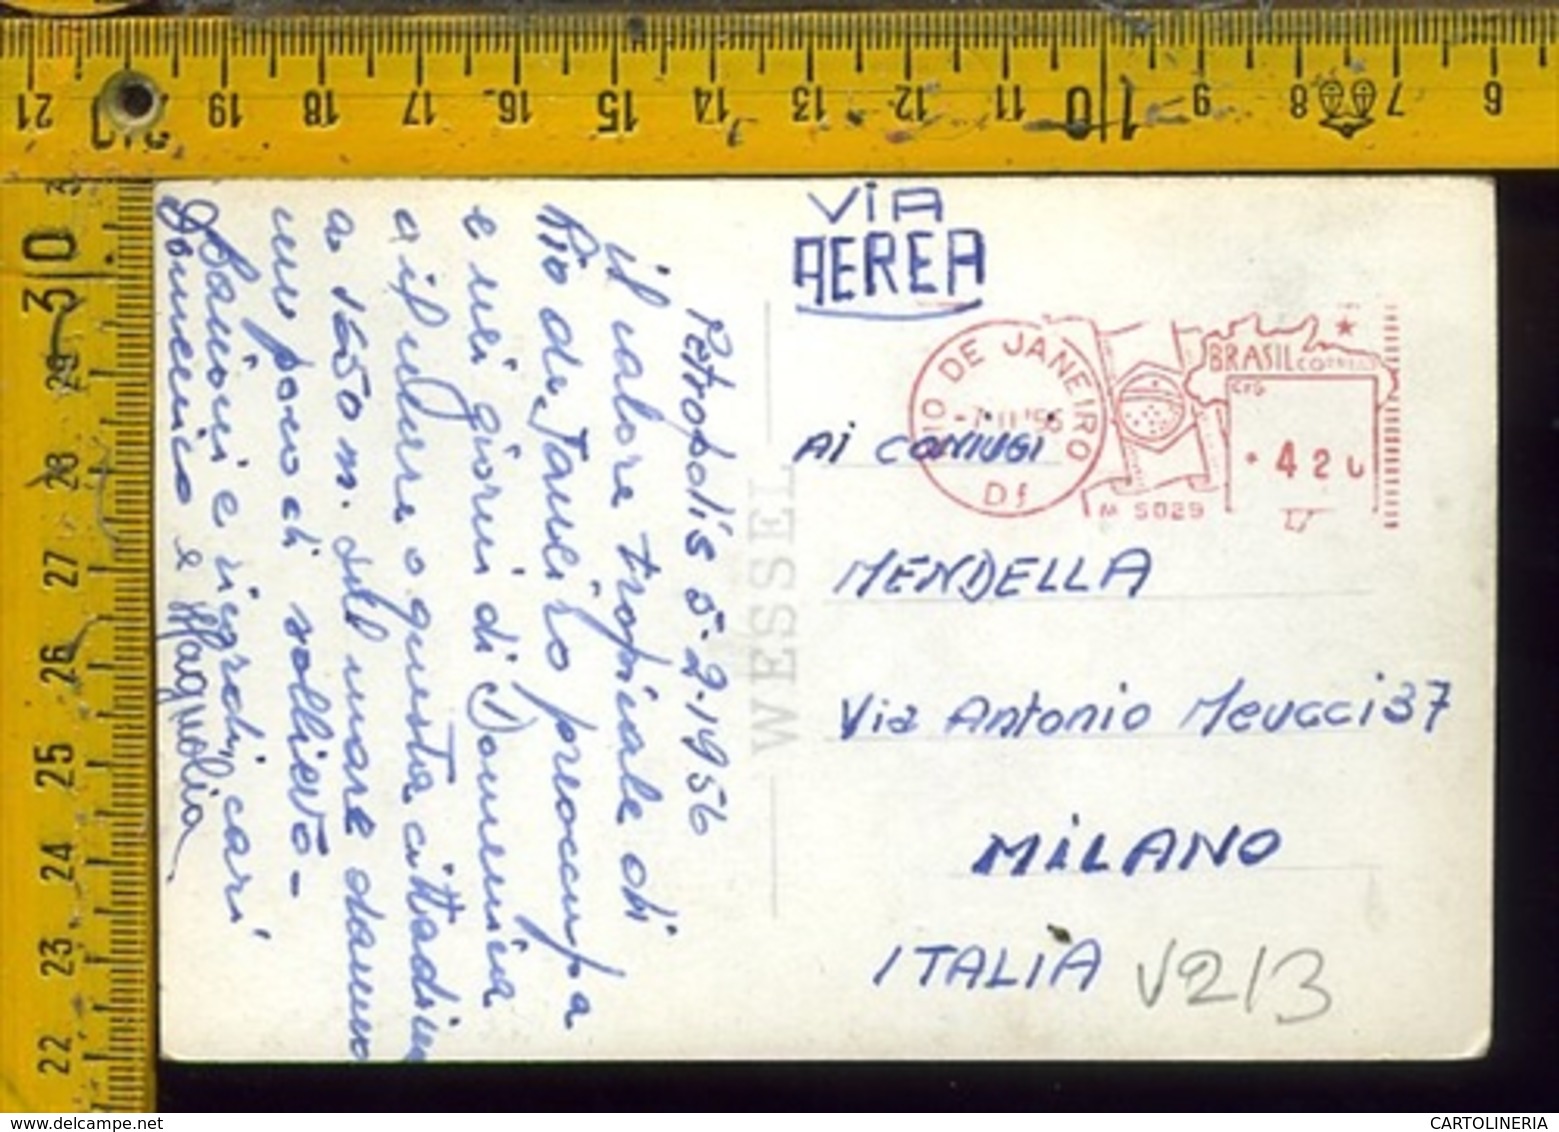 21 20 19 18 17 16 15 14 13 12 11 10 9 8 7 6
30
29
28
27
26
25
24
23
22
VIA
AEREA
RIO DE JANEIRO
-7·II'56
Df
BRASIL CORREIO
420
M 5029
AI CONIUGI
MENDELLA
Via Antonio Meucci 37
MILANO
ITALIA
V213
WESSEL
Petropolis 5-2-1956
il calore tropicale di
Rio de Janeiro preoccupa
e nei giorni di Domenica
e il
o questa cittadina
a 1650 m. sul mare danno
un poco di sollievo -
Saluoni e ricordi, cari
Domenico e Magnolia
www.delcampe.net
CARTOLINERIA